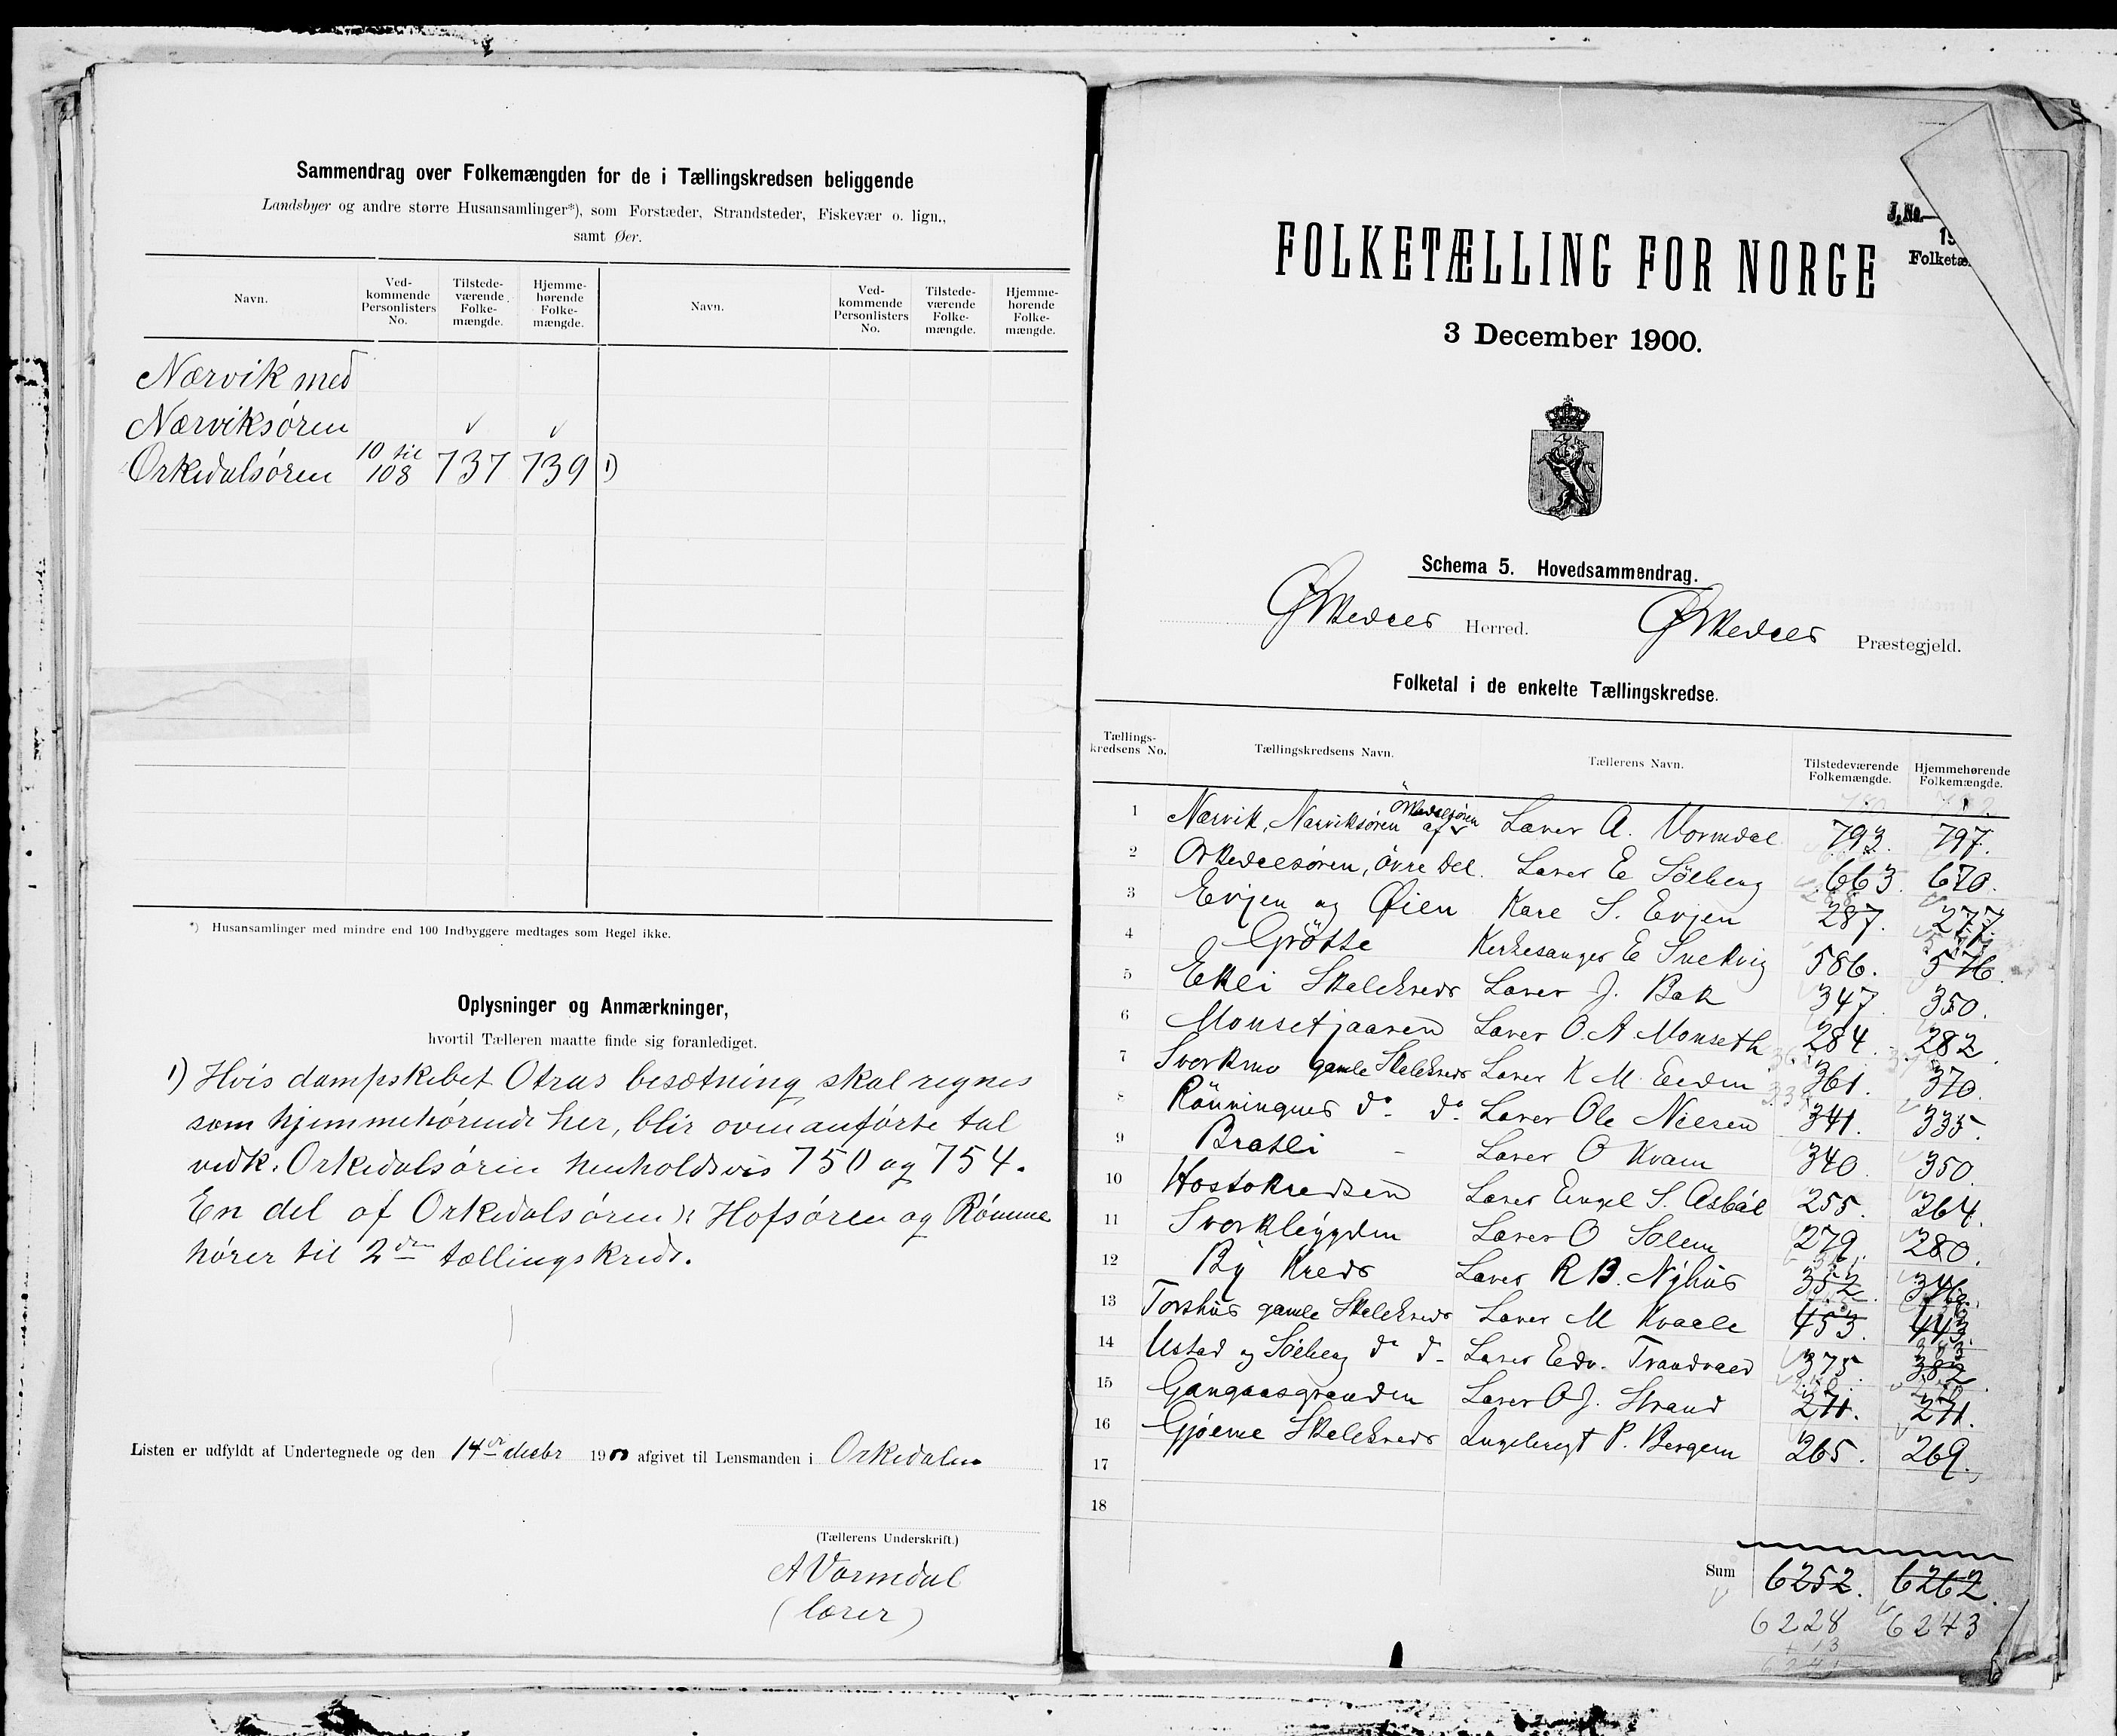 Sammendrag over Folkemængden for de i Tællingskredsen beliggende
Landsbyer og andre større Husansamlinger*), som Forstæder, Strandsteder, Fiskevær o. lign.,
samt Øer.
Navn. Ved-kommende Personlisters No. Tilstede-værende Folke-mængde. Hjemme-hørende Folke-mængde. Navn. Ved-kommende Personlisters No. Tilstede-værende Folke-mængde. Hjemme-hørende Folke-mængde.
Nærvik med
Nærviksøren
Orkedalsøren 10 til 108 737 739 1)
*) Husansamlinger med mindre end 100 Indbyggere medtages som Regel ikke.
Oplysninger og Anmærkninger,
hvortil Tælleren maatte finde sig foranlediget.
1) Hvis dampskibet Otras besætning skal regnes
som hjemmehørende her, blir ovenanførte tal
vedk. Orkedalsøren henholdsvis 750 og 754.
En del af Orkedalsøren): Hofsøren og Rømme
hører til 2den tællingskreds.
Listen er udfyldt af Undertegnede og den 14de decbr 1900 afgivet til Lensmanden i Orkedalen
(Tællerens Underskrift.)
A Vormdal
(lærer)
J. No.
19
Folketæ
FOLKETÆLLING FOR NORGE
3 December 1900.
Schema 5. Hovedsammendrag.
Ørkedal Herred. Ørkedal Præstegjeld.
Folketal i de enkelte Tællingskredse.
Tællings-kredsens No. Tællingskredsens Navn. Tællerens Navn. Tilstedeværende Folkemængde. Hjemmehørende Folkemængde.
1 Nærvik, Nærviksøren af Orkedalsøren Lærer A. Vormdal 793. 797.
2 Orkedalsøren, øvre del. Lærer E Sølberg 663. 670.
3 Evjen og Øien Kare S. Evjen 287. 277.
4 Grøtte Kirkesanger E Snekvig 586. 576.
5 Ekli Skolekreds Lærer J. Bak 347 350.
6 Monsetjaaren Lærer O. A. Monseth 284 282.
7 Svorkmo gamle Skolekreds Lærer K M. 361. 370.
8 Rønningnes do do Lærer Ole Nilsen 341. 335.
9 Bratli - Lærer O Kvam 340. 350.
10 Hostokredsen Lærer Engel S. Asbøl 255. 264.
11 Svorkbygden Lærer O Solem 279. 280.
12 By Kreds Lærer R B. Nyhus 352. 346.
13 Torshus gamle Skolekreds Lærer M Kvaale 453. 443.
14 Ustad og Sølberg do do Lærer Edv. 375. 382.
15 Gangaasgrenden Lærer O J. Strand 271. 271.
16 Gjølme Skolekreds Ingebrigt P. Bergem 265. 269.
17
18
Sum 6252. 6262.
6228 6243
+ 13